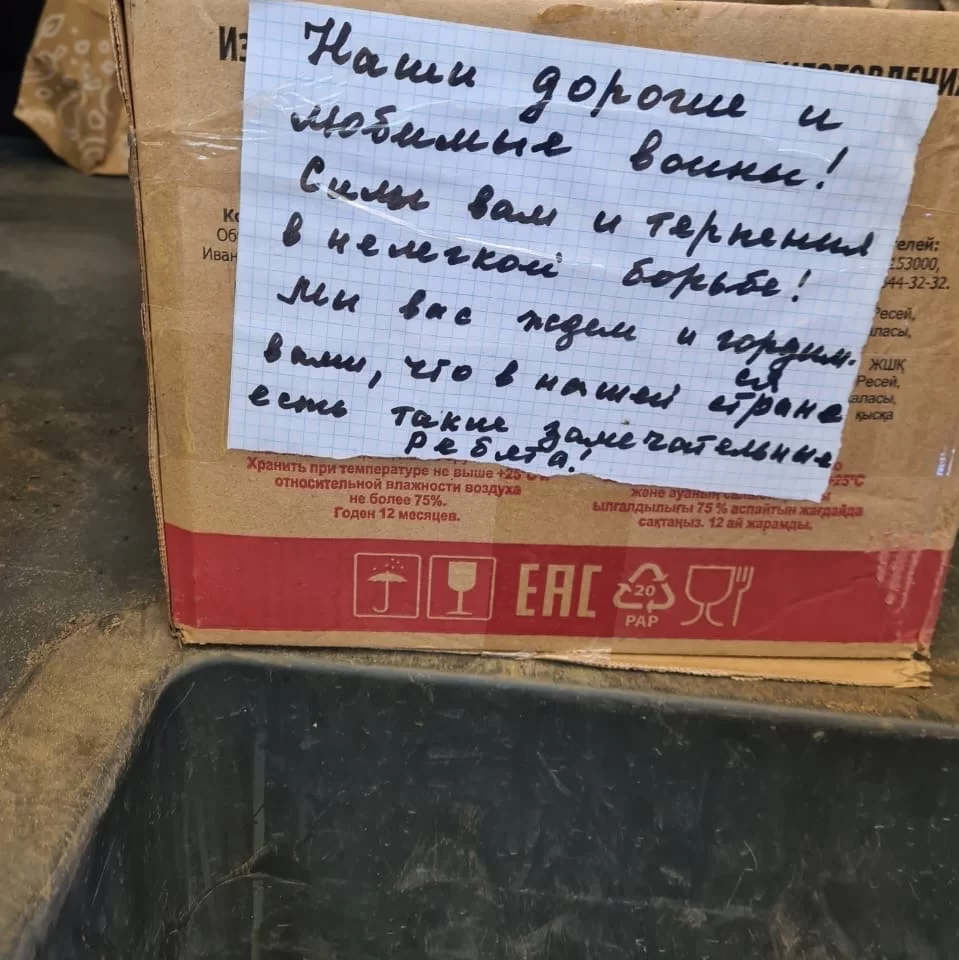 Наши дорогие и
любимые воины!
Силы вам и терпения
в нелегкой борьбе!
Мы вас ждем и гордим
ся
вами, что в нашей стране
есть такие замечательные
ребята!
елей:
53000,
44-32-32.
Ресей,
ЖШҚ
Ресей,
қысқа
Хранить при температуре не выше +25°С
относительной влажности воздуха
не более 75%.
Годен 12 месяцев.
+25°С
және ауаның
ылғалдылығы 75 % аспайтын жағдайда
сақтаңыз. 12 ай жарамды.
EAC
20
PAP